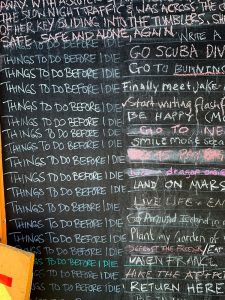 AWAY WITHOUT
THE SLOW NIGHT TRAFFIC & WAS ACROSS THE
OF HER KEY SLIDING INTO THE TUMBLERS. SH
SAFE. SAFE AND ALONE, AGAIN. WRITE A
THINGS TO DO BEFORE I DIE GO SCUBA DIV
THINGS TO DO BEFORE I DIE GO TO
THINGS TO DO BEFORE I DIE Finally meet Jake
THINGS TO DO BEFORE I DIE Start writing flash
THINGS TO DO BEFORE I DIE BE HAPPY
THINGS TO DO BEFORE I DIE GO TO NE
THINGS TO DO BEFORE I DIE SMILE MORE
THINGS TO DO BEFORE I DIE
THINGS TO DO BEFORE I DIE dragon
THINGS TO DO BEFORE I DIE LAND ON MARS
THINGS TO DO BEFORE I DIE LIVE LIFE + EN
THINGS TO DO BEFORE I DIE Get Around Iceland in
THINGS TO DO BEFORE I DIE Plant my Garden of
THINGS TO DO BEFORE I DIE DEFEAT THE
THINGS TO DO BEFORE I DIE FRANCE
THINGS TO DO BEFORE I DIE HIKE THE
THINGS TO DO BEFORE I DIE RETURN HERE